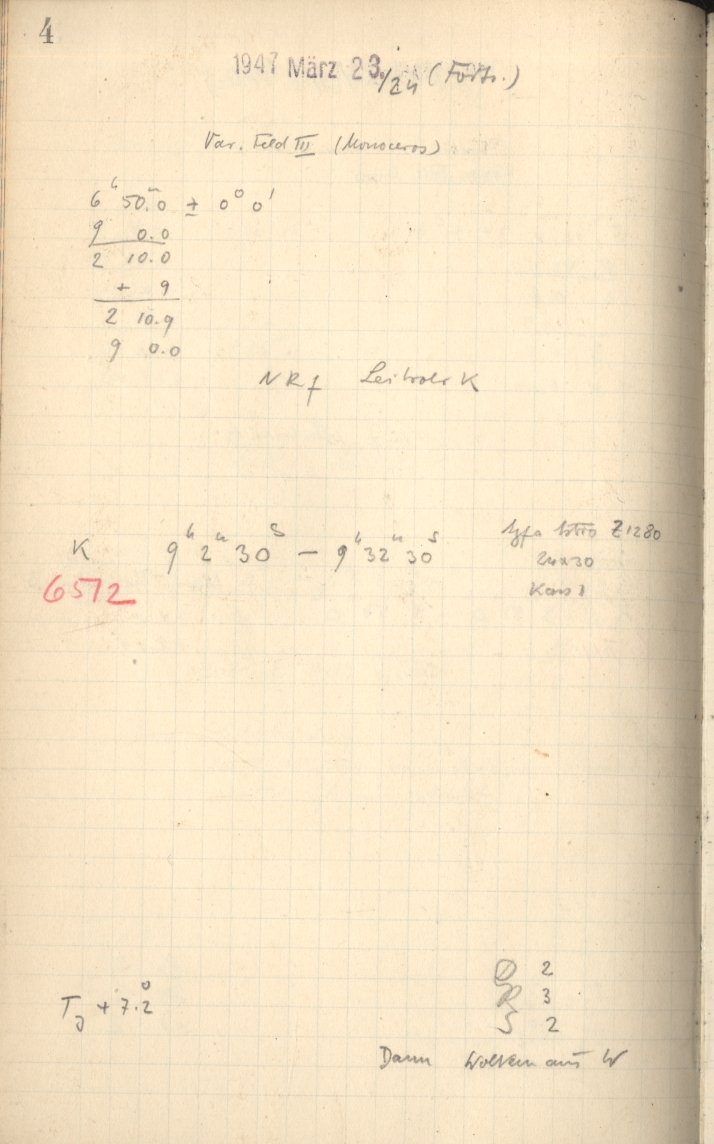 4
1947 März 23./24 (Forts.)
Var. Feld III (Monoceros)
6h 50m.0 ± 0° 0'
9 0.0
2 10.0
+ 9
2 10.9
9 0.0
NRf Leitrohr K
K 9h 2m 30s – 9h 32m 30s Agfa Astro Z1280
6572 24x30
Kass 1
D 2
TJ + 7.°2 R 3
S 2
Dann Wolken aus W